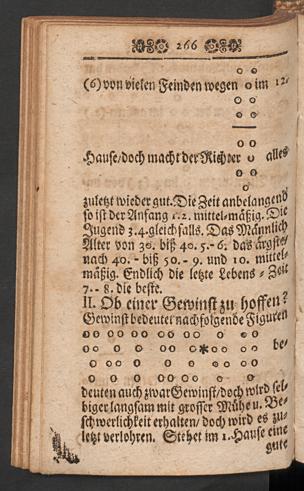 266
(6) von vielen Feinden wegen o im 12.
Hause/doch macht der Richter alles
zuletzt wieder gut. Die Zeit anbelangend
so ist der Anfang 1. 2. mittel-mäßig. Die
Jugend 3. 4. gleichfalls. Das Männlich
Alter von 30. biß 40. 5.-6. das ärgste/
nach 40. - biß 50. - 9. und 10. mittel-
mäßig. Endlich die letzte Lebens-Zeit
7.-8. die beste.
II. Ob einer Gewinst zu hoffen?
Gewinst bedeutet nachfolgende Figuren
be-
deuten auch zwar Gewinst/doch wird sel-
biger langsam mit grosser Mühe u. Be-
schwerlichkeit erhalten/doch wird es zu-
letzt verlohren. Stehet im 1. Hause eine
gute